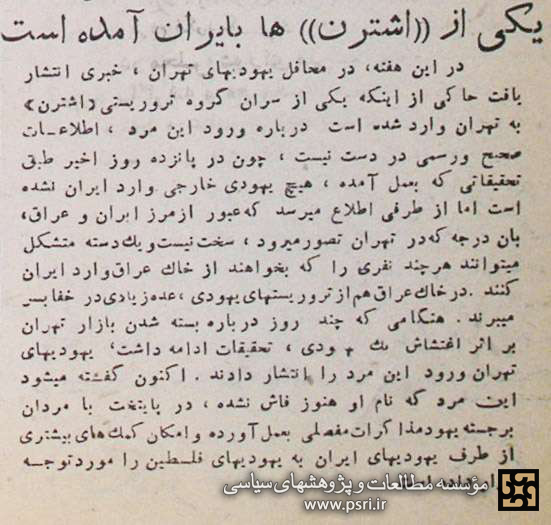 یکی از ((اشترن)) ها بایران آمده است
در این هفته، در محافل یهودیهای تهران ، خبری انتشار
یافت حاکی از اینکه یکی از سران گروه تروریستی «اشترن»
به تهران وارد شده است درباره ورود این مرد ، اطلاعـات
صحیح ورسمی در دست نیست ، چون در پانزده روز اخیر طبق
تحقیقاتی که بعمل آمده ، هیچ یهودی خارجی وارد ایران نشده
است اما از طرفی اطلاع میرسد که عبور از مرز ایران و عراق،
بان درجه که در تهران تصور میرود ، سخت نیست و یك دسته متشکل
میتوانند هر چند نفری را که بخواهند از خاك عراق وارد ایران
کنند . در خاك عراق هم از تروریستهای یهودی ، عده زیادی در خفا بسر
میبرند . هنگامی که چند روز درباره بسته شدن بازار تهران
بر اثر اغتشاش یك یهودی ، تحقیقات ادامه داشت، یهودیهای
تهران ورود این مرد را انتشار دادند . اکنون گفته میشود
این مرد که نام او هنوز فاش نشده ، در پایتخت با مردان
برجسته یهود مذاکرات مفصلی بعمل آورده و امکان کمك های بیشتری
از طرف یهودیهای ایران به یهودیهای فلسطین را مورد توجه
مؤسسه مطالعات و پژوهشهای سیاسی
www.psri.ir